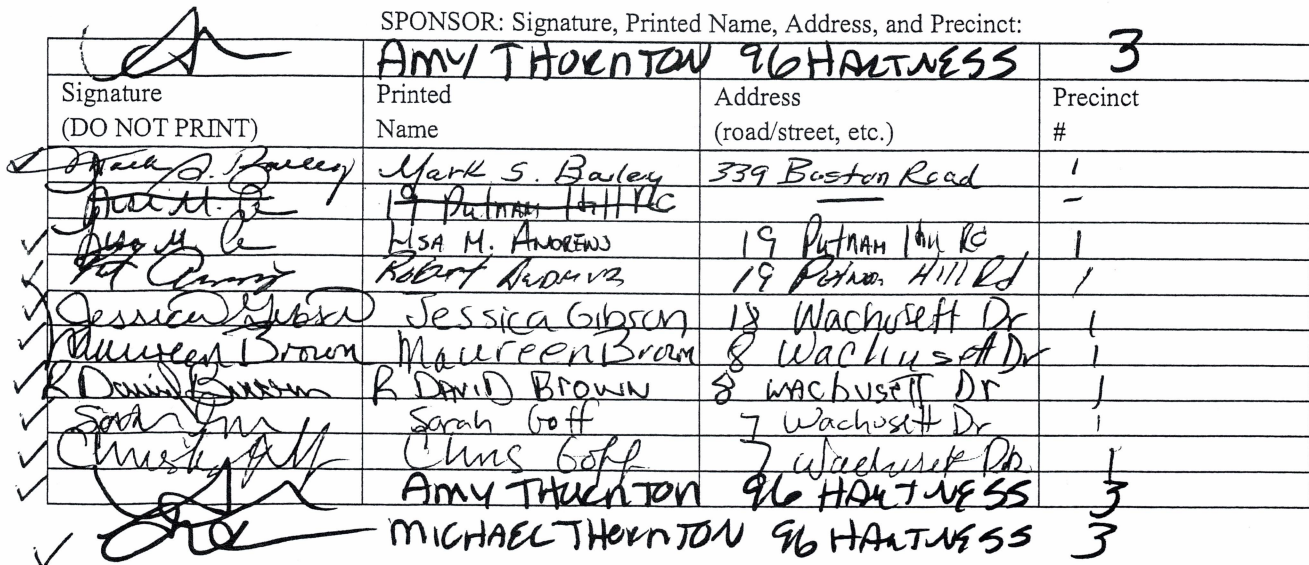 SPONSOR: Signature, Printed Name, Address, and Precinct:
AMY THORNTON 96 HARTNESS 3
Signature Printed Address Precinct
(DO NOT PRINT) Name (road/street, etc.) #
Mark S. Bailey Mark S. Bailey 339 Boston Road 1
19 Putnam Hill Rd — -
LISA M. ANDREWS 19 Putnam Hill Rd 1
Robert Andrews 19 Putnam Hill Rd 1
Jessica Gibson Jessica Gibson 18 Wachusett Dr 1
Maureen Brown Maureen Brown 8 Wachusett Dr 1
R David Brown R DAVID BROWN 8 WACHUSETT Dr 1
Sarah Goff 7 Wachusett Dr 1
Chris Goff 7 Wachusett Dr 1
AMY THORNTON 96 HARTNESS 3
MICHAEL THORNTON 96 HARTNESS 3